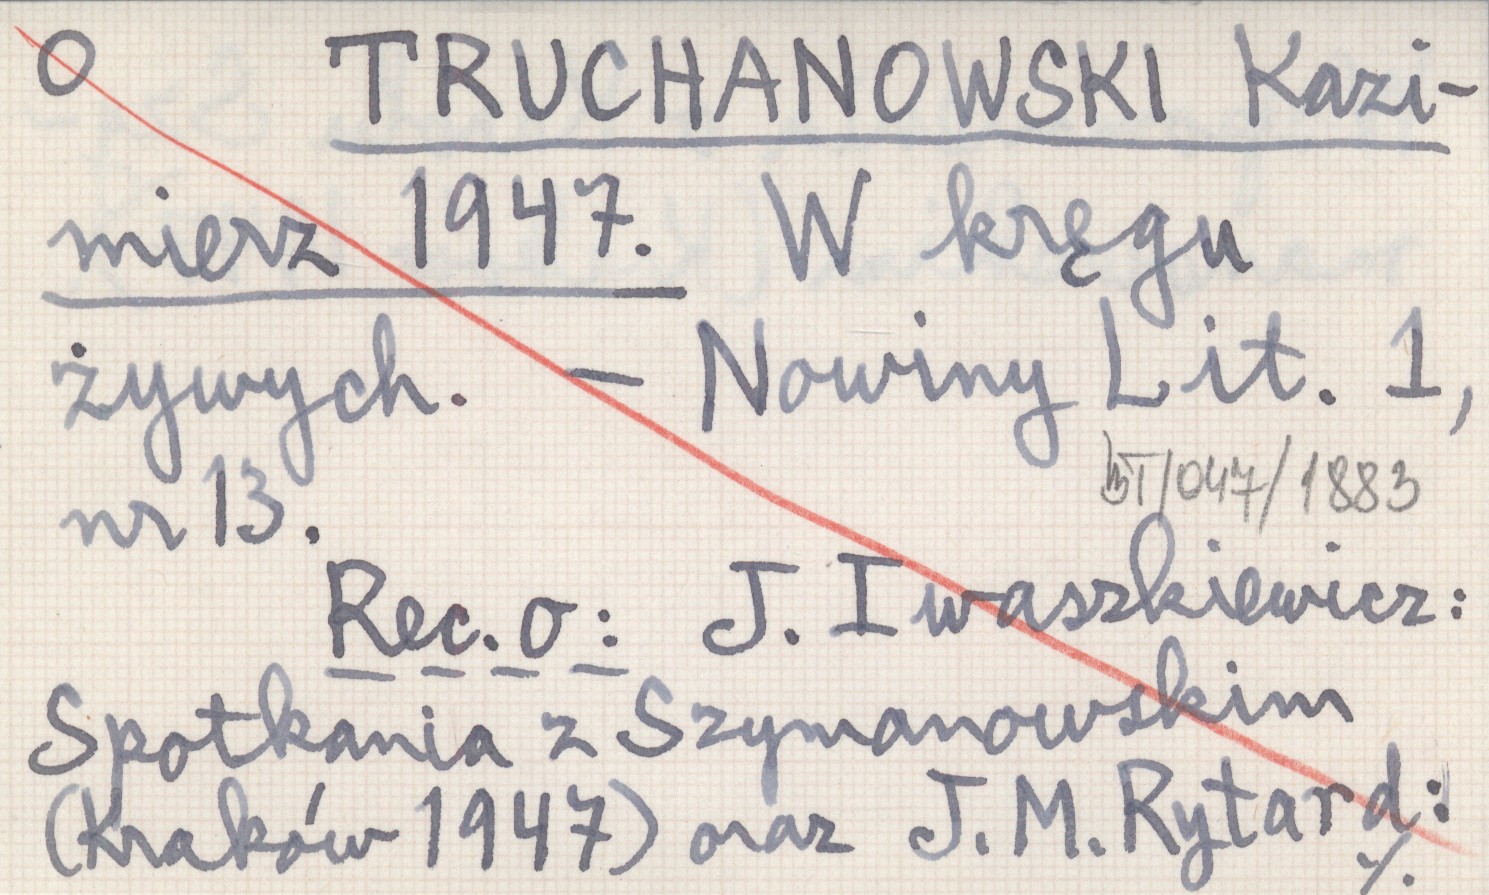 O TRUCHANOWSKI Kazi-
mierz 1947. W kręgu
żywych. — Nowiny Lit. 1,
nr 13.
/047/1883
Rec. o: J. Iwaszkiewicz:
Spotkania z Szymanowskim
(Kraków 1947) oraz J. M. Rytard:
./.